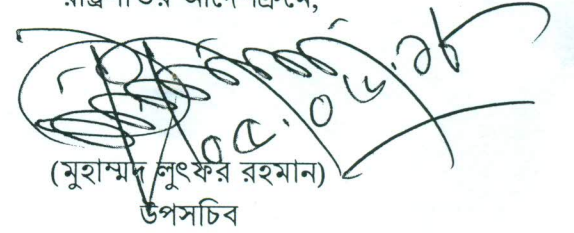 রাষ্ট্রপতির আদেশক্রমে,
(মুহাম্মদ লুৎফর রহমান)
উপসচিব